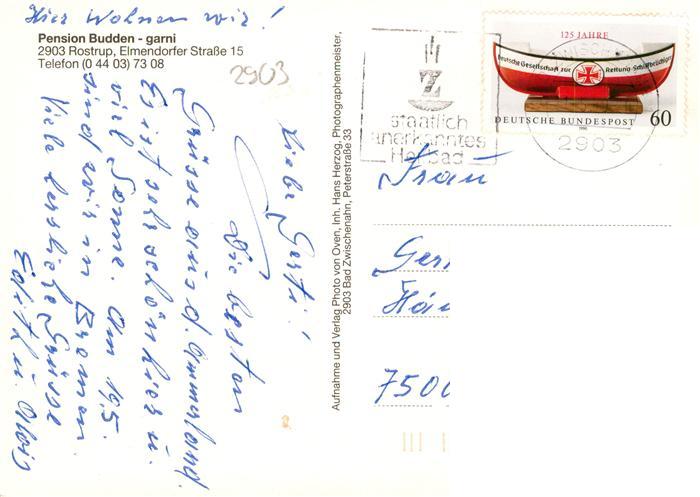 Hier Wohnen wir!
Pension Budden - garni
2903 Rostrup, Elmendorfer Straße 15
Telefon (0 44 03) 73 08
2903
Liebe Gerti!
Die besten
Grüsse aus d. Ammerland.
Es ist sehr schön hier u.
viel Sonne. Am 19.5.
sind wir in Bremen.
Viele herzliche Grüsse
Edith u. Alois
Aufnahme und Verlag Photo von Oven, Inh. Hans Herzog, Photographenmeister,
2903 Bad Zwischenahn, Peterstraße 33
Z
staatlich
anerkanntes
Heilbad
125 JAHRE
Deutsche Gesellschaft zur Rettung Schiffbrüchiger
DEUTSCHE BUNDESPOST 60
1990
2903
Frau
Ger
Hän
7500